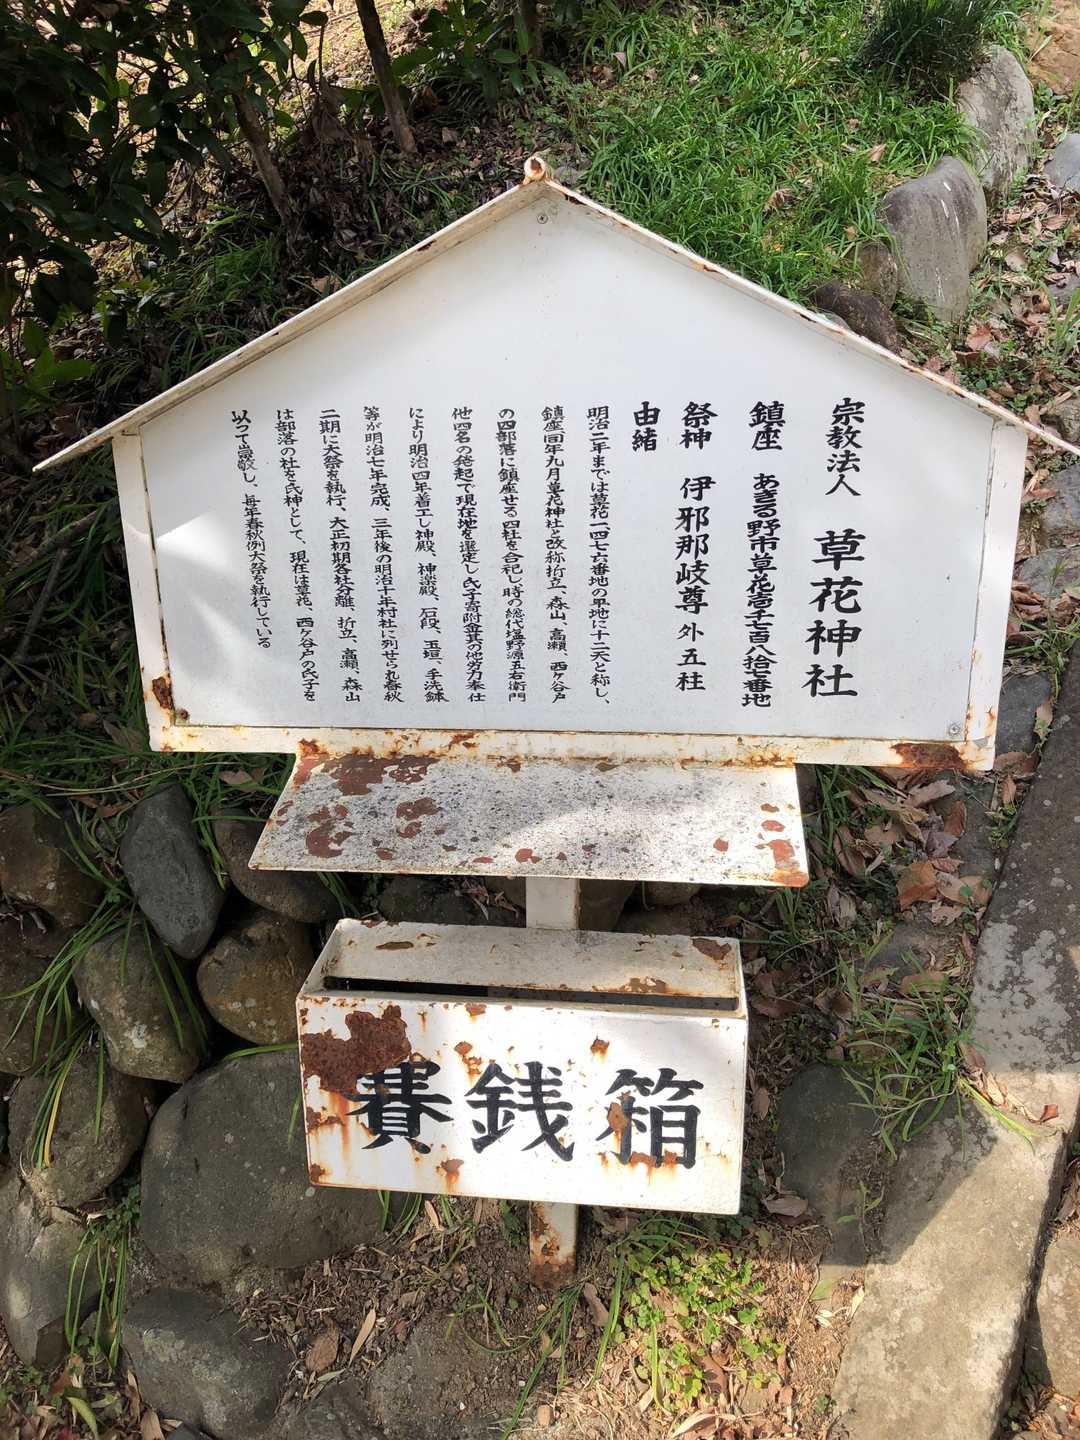 宗教法人 草花神社
鎮座 あきる野市草花壱千七百八拾七番地
祭神 伊邪那岐尊 外五柱
由緒
明治二年までは草花一、四七六番地の平地に十二天と称し、
鎮座同年九月草花神社と改称折立、森山、高瀬、西ヶ谷戸
の四部落に鎮座せる四社を合祀し、時の総代塩野源五右衛門
他四名の発起で現在地を選定し氏子寄附金其の他労力奉仕
により明治四年着工し神殿、神楽殿、石段、玉垣、手洗鉢
等が明治七年完成、三年後の明治十年村社に列せられ春秋
二期に大祭を執行、大正初期各社分離、折立、高瀬、森山
は部落の社を氏神として、現在は草花、西ヶ谷戸の氏子を
以つて崇敬し、毎年春秋例大祭を執行している
賽銭箱